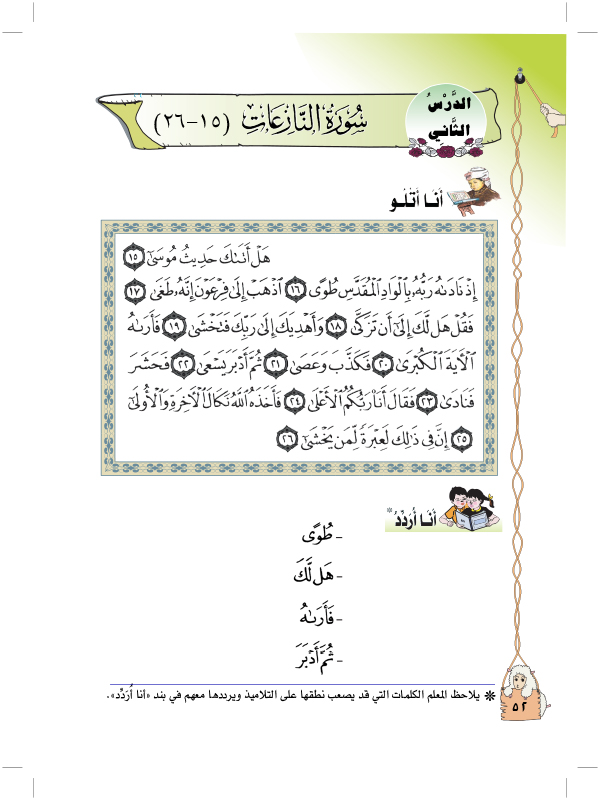 الدَّرْسُ
الثَّانِي
سُورَةُ النَّازِعَاتِ (١٥-٢٦)
أَنَا أَتْلُو
هَلْ أَتَىٰكَ حَدِيثُ مُوسَىٰٓ ١٥
إِذْ نَادَىٰهُ رَبُّهُۥ بِٱلْوَادِ ٱلْمُقَدَّسِ طُوًى ١٦ ٱذْهَبْ إِلَىٰ فِرْعَوْنَ إِنَّهُۥ طَغَىٰ ١٧
فَقُلْ هَل لَّكَ إِلَىٰٓ أَن تَزَكَّىٰ ١٨ وَأَهْدِيَكَ إِلَىٰ رَبِّكَ فَتَخْشَىٰ ١٩ فَأَرَىٰهُ
ٱلْـَٔايَةَ ٱلْكُبْرَىٰ ٢٠ فَكَذَّبَ وَعَصَىٰ ٢١ ثُمَّ أَدْبَرَ يَسْعَىٰ ٢٢ فَحَشَرَ
فَنَادَىٰ ٢٣ فَقَالَ أَنَا۠ رَبُّكُمُ ٱلْأَعْلَىٰ ٢٤ فَأَخَذَهُ ٱللَّهُ نَكَالَ ٱلْـَٔاخِرَةِ وَٱلْأُولَىٰٓ
٢٥ إِنَّ فِى ذَٰلِكَ لَعِبْرَةً لِّمَن يَخْشَىٰٓ ٢٦
أَنَا أُرَدِّدُ*
- طُوًى
- هَل لَّكَ
- فَأَرَىٰهُ
- ثُمَّ أَدْبَرَ
* يلاحظ المعلم الكلمات التي قد يصعب نطقها على التلاميذ ويرددها معهم في بند «أنا أُرَدِّد».
٥٢